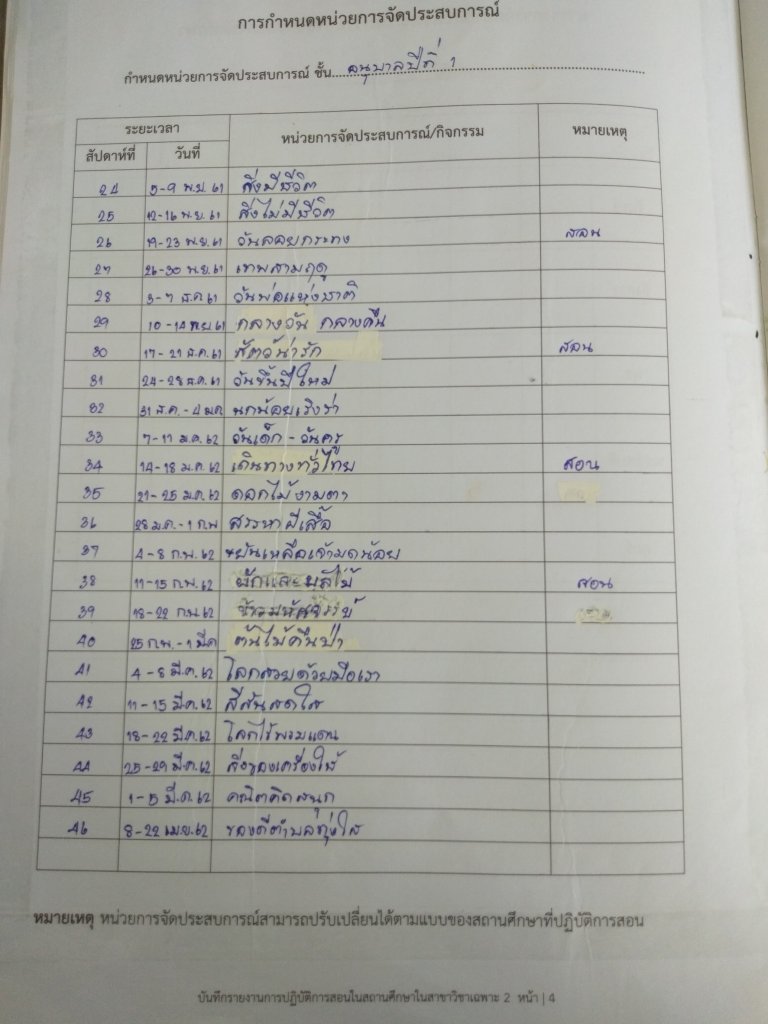 การกำหนดหน่วยการจัดประสบการณ์
กำหนดหน่วยการจัดประสบการณ์ ชั้น อนุบาลปีที่ 1
ระยะเวลา หน่วยการจัดประสบการณ์/กิจกรรม หมายเหตุ
สัปดาห์ที่ วันที่
24 5-9 พ.ย. 61 สิ่งมีชีวิต
25 12-16 พ.ย. 61 สิ่งไม่มีชีวิต
26 19-23 พ.ย. 61 วันลอยกระทง สอน
27 26-30 พ.ย. 61 เทพสามฤดู
28 3-7 ธ.ค 61 วันพ่อแห่งชาติ
29 10-14 61 กลางวัน กลางคืน
30 17-21 ธ.ค. 61 สัตว์น่ารัก สอน
31 24-28 ธ.ค. 61 วันขึ้นปีใหม่
32 31 ธ.ค. - 4 ม.ค นกน้อยเริงร่า
33 7-11 ม.ค 62 วันเด็ก - วันครู
34 14-18 ม.ค 62 เดินทางทั่วไทย สอน
35 21-25 ม.ค 62 ดอกไม้งามตา
36 28 ม.ค. - 1 ก.พ สรรหาผีเสื้อ
37 4-8 ก.พ. 62 ขยันเหลือเจ้ามดน้อย
38 11-15 ก.พ. 62 ผักและผลไม้ สอน
39 18-22 ก.พ. 62
40 25 ก.พ. - 1 มี.ค ต้นไม้คืนป่า
41 4-8 มี.ค. 62 โลกสวยด้วยมือเรา
42 11-15 มี.ค. 62 สีสันสดใส
43 18-22 มี.ค. 62 โลกไร้พรมแดน
44 25-29 มี.ค. 62 สิ่งของเครื่องใช้
45 1-5 มี.ค. 62 คณิตคิดสนุก
46 8-22 เม.ย. 62 ของดีตำบลทุ่งใส
หมายเหตุ หน่วยการจัดประสบการณ์สามารถปรับเปลี่ยนได้ตามแบบของสถานศึกษาที่ปฏิบัติการสอน
บันทึกรายงานการปฏิบัติการสอนในสถานศึกษาในสาขาวิชาเฉพาะ 2 หน้า | 4